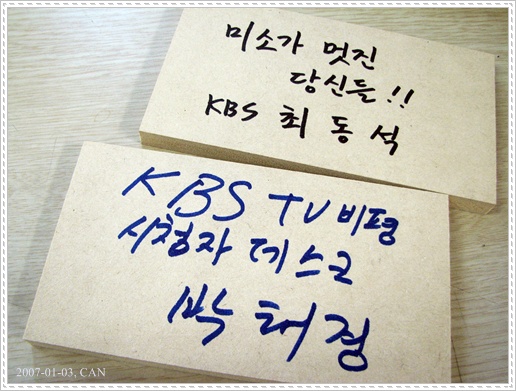 미소가 멋진
당신들!!
KBS 최동석
KBS TV비평
시청자 데스크
박태경
2007-01-03, CAN